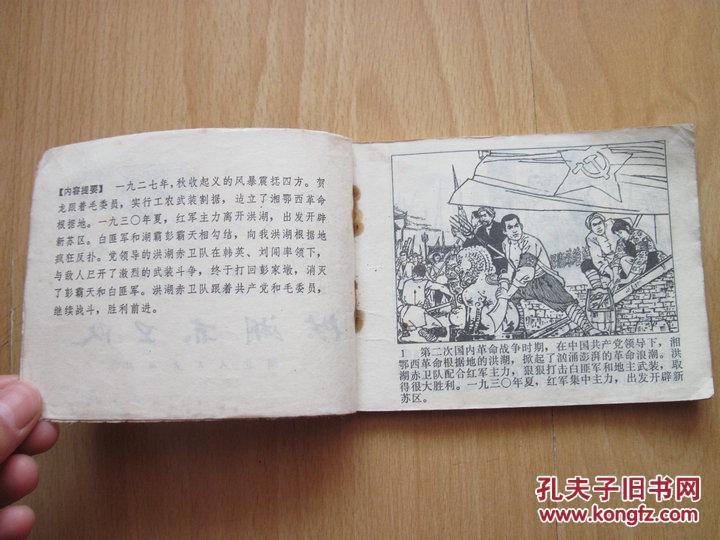 【内容提要】 一九二七年，秋收起义的风暴震抚四方。贺
龙跟着毛委员，实行工农武装割据，边立了湘鄂西革命
根据地。一九三〇年夏，红军主力离开洪湖，出发开辟
新苏区。白匪军和湖霸彭霸天相勾结，向我洪湖根据地
疯狂反扑。党领导的洪湖赤卫队在韩英、刘闯率领下，
与敌人开开了激烈的武装斗争，终于打回彭家墩，消灭
了彭霸天和白匪军。洪湖赤卫队跟着共产党和毛委员，
继续战斗，胜利前进。
1 第二次国内革命战争时期，在中国共产党领导下，湘
鄂西革命根据地的洪湖，掀起了汹涌澎湃的革命浪潮。洪
湖赤卫队配合红军主力，狠狠打击白匪军和地主武装，取
得很大胜利。一九三〇年夏，红军集中主力，出发开辟新
苏区。
孔夫子旧书网
www.kongfz.com